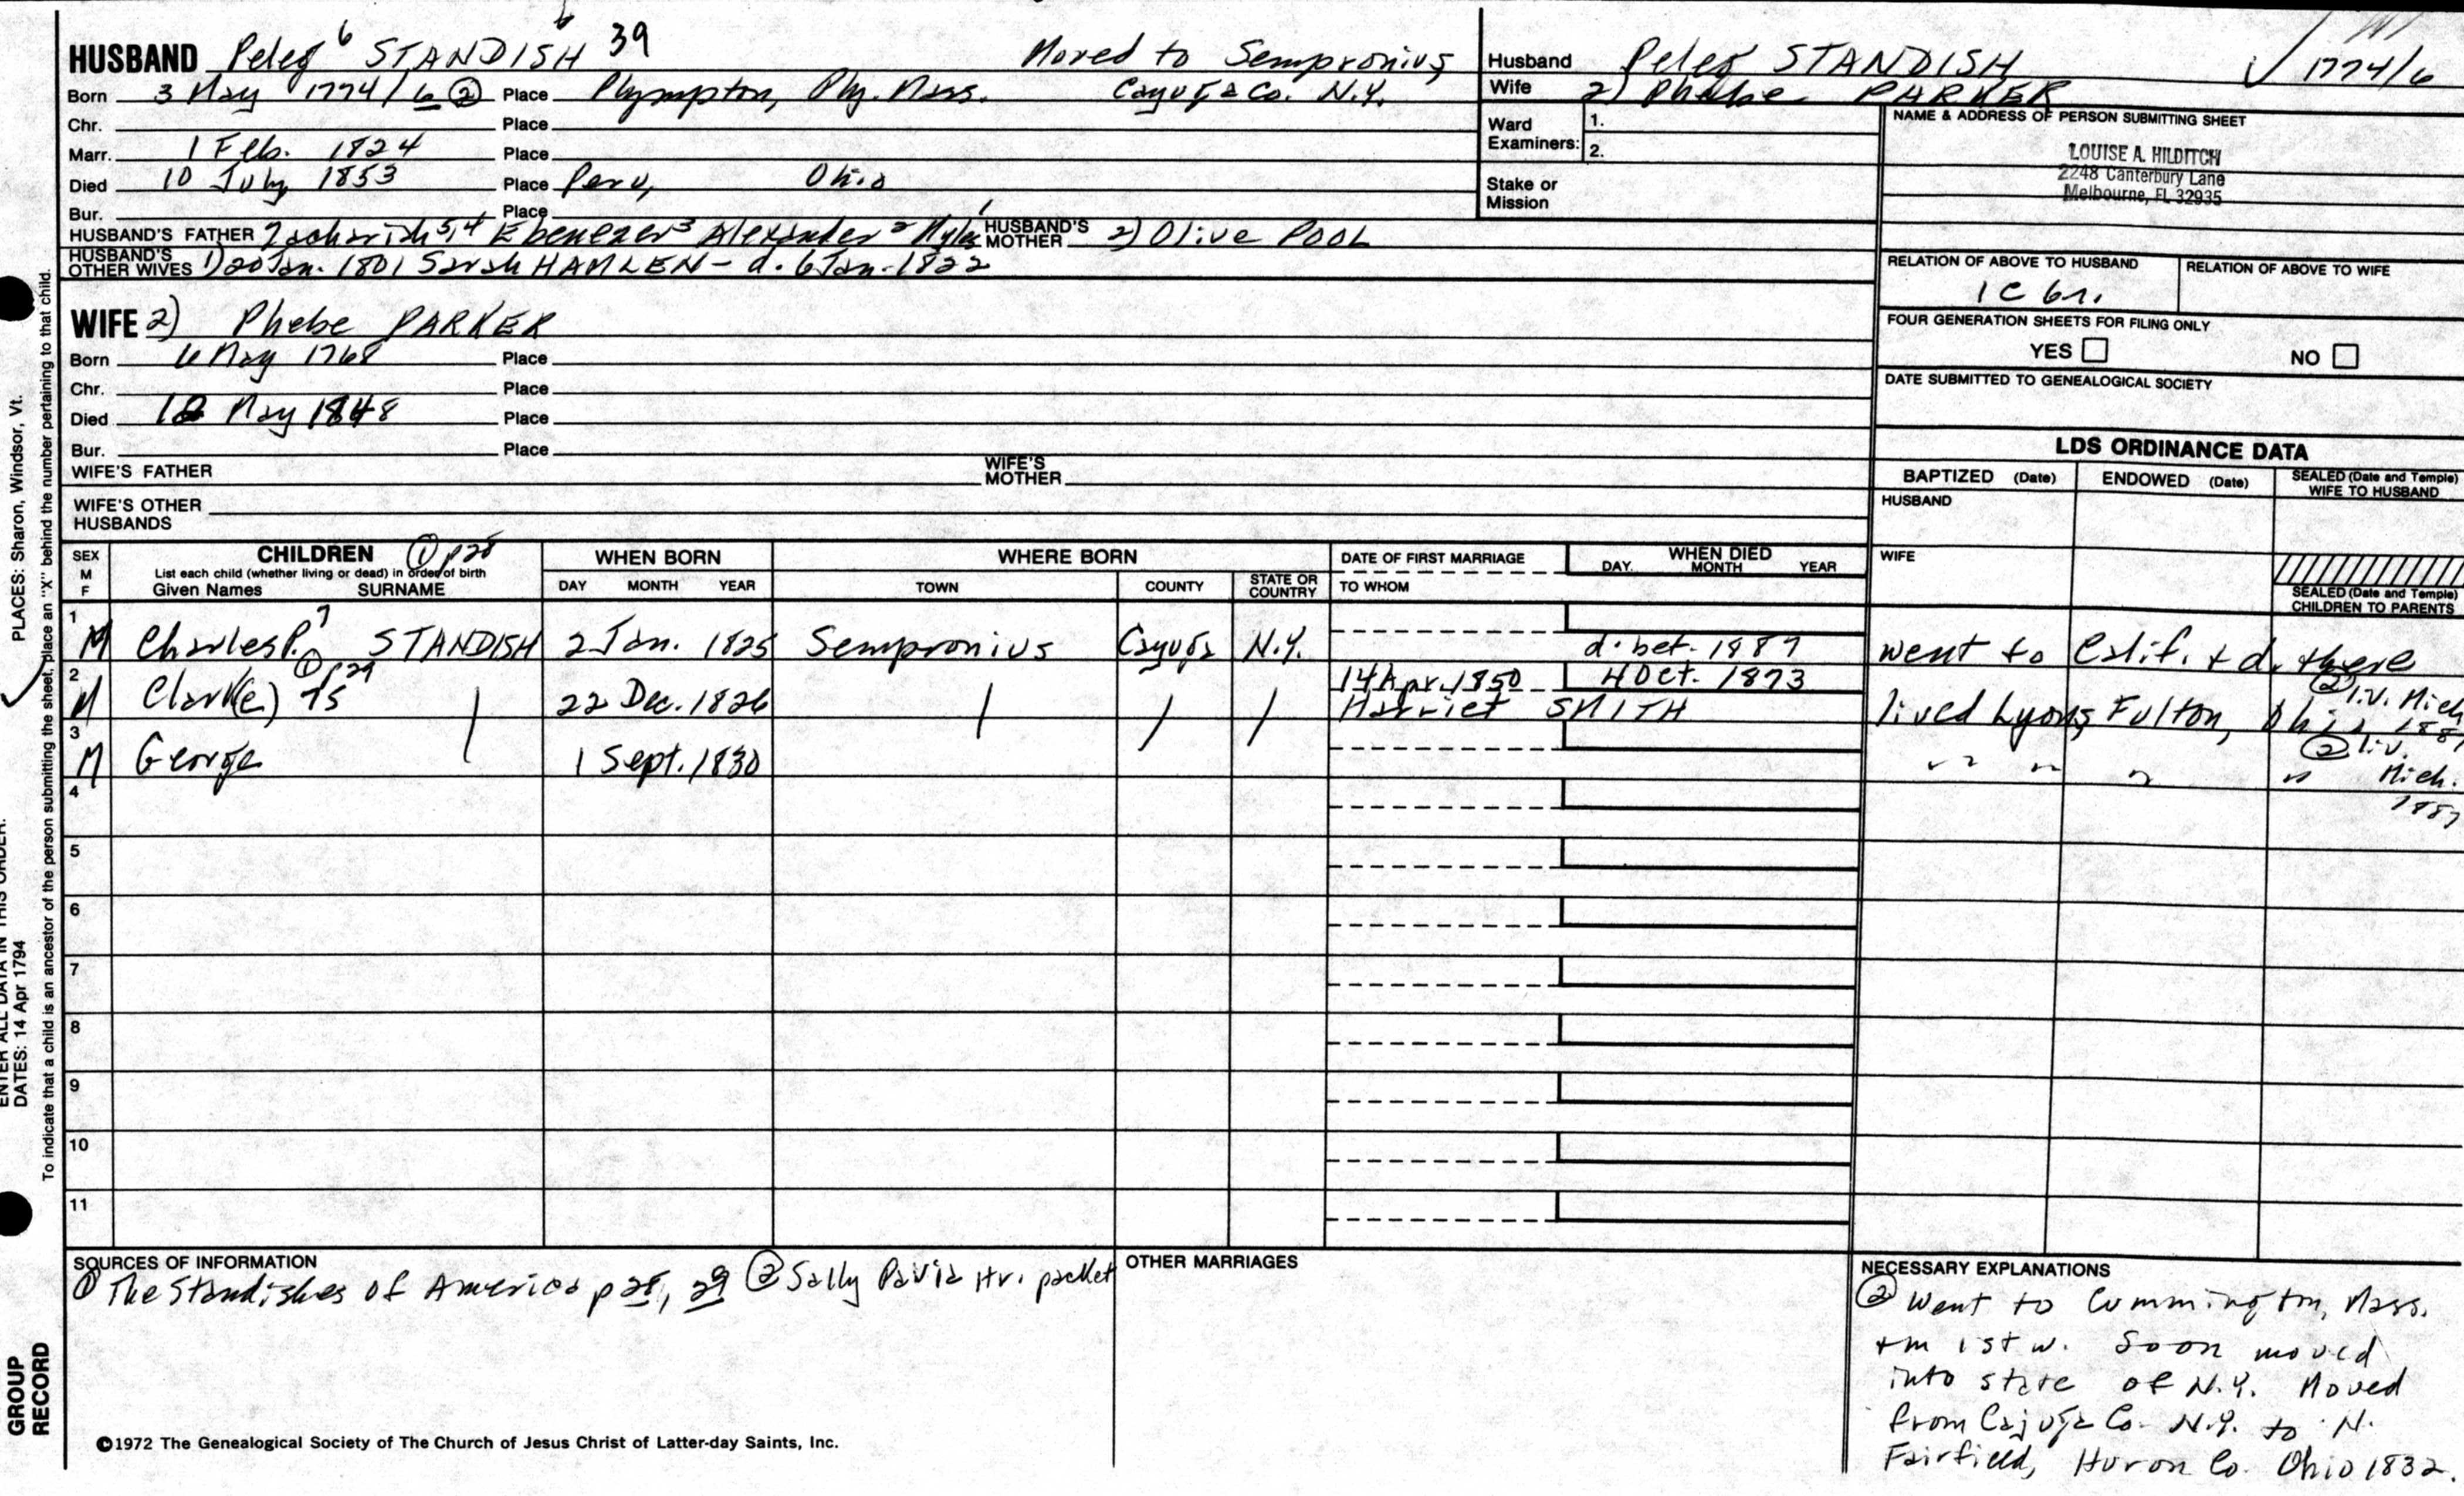 HUSBAND Peleg 6 STANDISH 39 Moved to Sempronius
Born 3 May 1774/6 ② Place Plympton, Ply. Mass. Cayuga Co. N.Y.
Chr. Place
Marr. 1 Feb. 1824 Place
Died 10 July 1853 Place Peru, Ohio
Bur. Place
HUSBAND'S FATHER Zachariah 5,4 Ebenezer 3 Alexander 2 Myles 1 HUSBAND'S MOTHER 2) Olive POOL
HUSBAND'S OTHER WIVES 1) 20 Jan. 1801 Sarah HAMLEN - d. 6 Jan. 1822
Husband Peleg STANDISH 1774/6
Wife 2) Phebe PARKER
Ward Examiners: 1.
2.
Stake or Mission
NAME & ADDRESS OF PERSON SUBMITTING SHEET
LOUISE A. HILDITCH
2248 Canterbury Lane
Melbourne, FL 32935
RELATION OF ABOVE TO HUSBAND RELATION OF ABOVE TO WIFE
1 C 6r.
FOUR GENERATION SHEETS FOR FILING ONLY
YES NO
DATE SUBMITTED TO GENEALOGICAL SOCIETY
WIFE 2) Phebe PARKER
Born 6 May 1768 Place
Chr. Place
Died 12 May 1848 Place
Bur. Place
WIFE'S FATHER WIFE'S MOTHER
WIFE'S OTHER HUSBANDS
LDS ORDINANCE DATA
BAPTIZED (Date) ENDOWED (Date) SEALED (Date and Temple) WIFE TO HUSBAND
HUSBAND
WIFE
SEALED (Date and Temple) CHILDREN TO PARENTS
SEX M F
CHILDREN ① p28
List each child (whether living or dead) in order of birth
Given Names SURNAME
WHEN BORN
DAY MONTH YEAR
WHERE BORN
TOWN COUNTY STATE OR COUNTRY
DATE OF FIRST MARRIAGE
TO WHOM
WHEN DIED
DAY MONTH YEAR
1 M Charles P. 7 STANDISH 2 Jan. 1825 Sempronius Cayuga N.Y. d. bet. 1887 went to Calif. + d. there
2 M Clark(e) 75 ① p29 22 Dec. 1826 14 Apr. 1850 4 Oct. 1873
Harriet SMITH lived Lyons, Fulton, Ohio ② liv. Mich. 1887
3 M George 1 Sept. 1830 " " " " ② liv. Mich. 1887
4
5
6
7
8
9
10
11
SOURCES OF INFORMATION
① The Standishes of America p 28, 29 ② Sally Davis Hr. packet
OTHER MARRIAGES
NECESSARY EXPLANATIONS
② Went to Cummington, Mass.
+ m 1st w. Soon moved
into state of N.Y. Moved
from Cajuga Co. N.Y. to N.
Fairfield, Huron Co. Ohio 1832.
©1972 The Genealogical Society of The Church of Jesus Christ of Latter-day Saints, Inc.
PLACES: Sharon, Windsor, Vt.
ENTER ALL DATA IN THIS ORDER:
DATES: 14 Apr 1794
To indicate that a child is an ancestor of the person submitting the sheet, place an "X" behind the number pertaining to that child.
GROUP RECORD